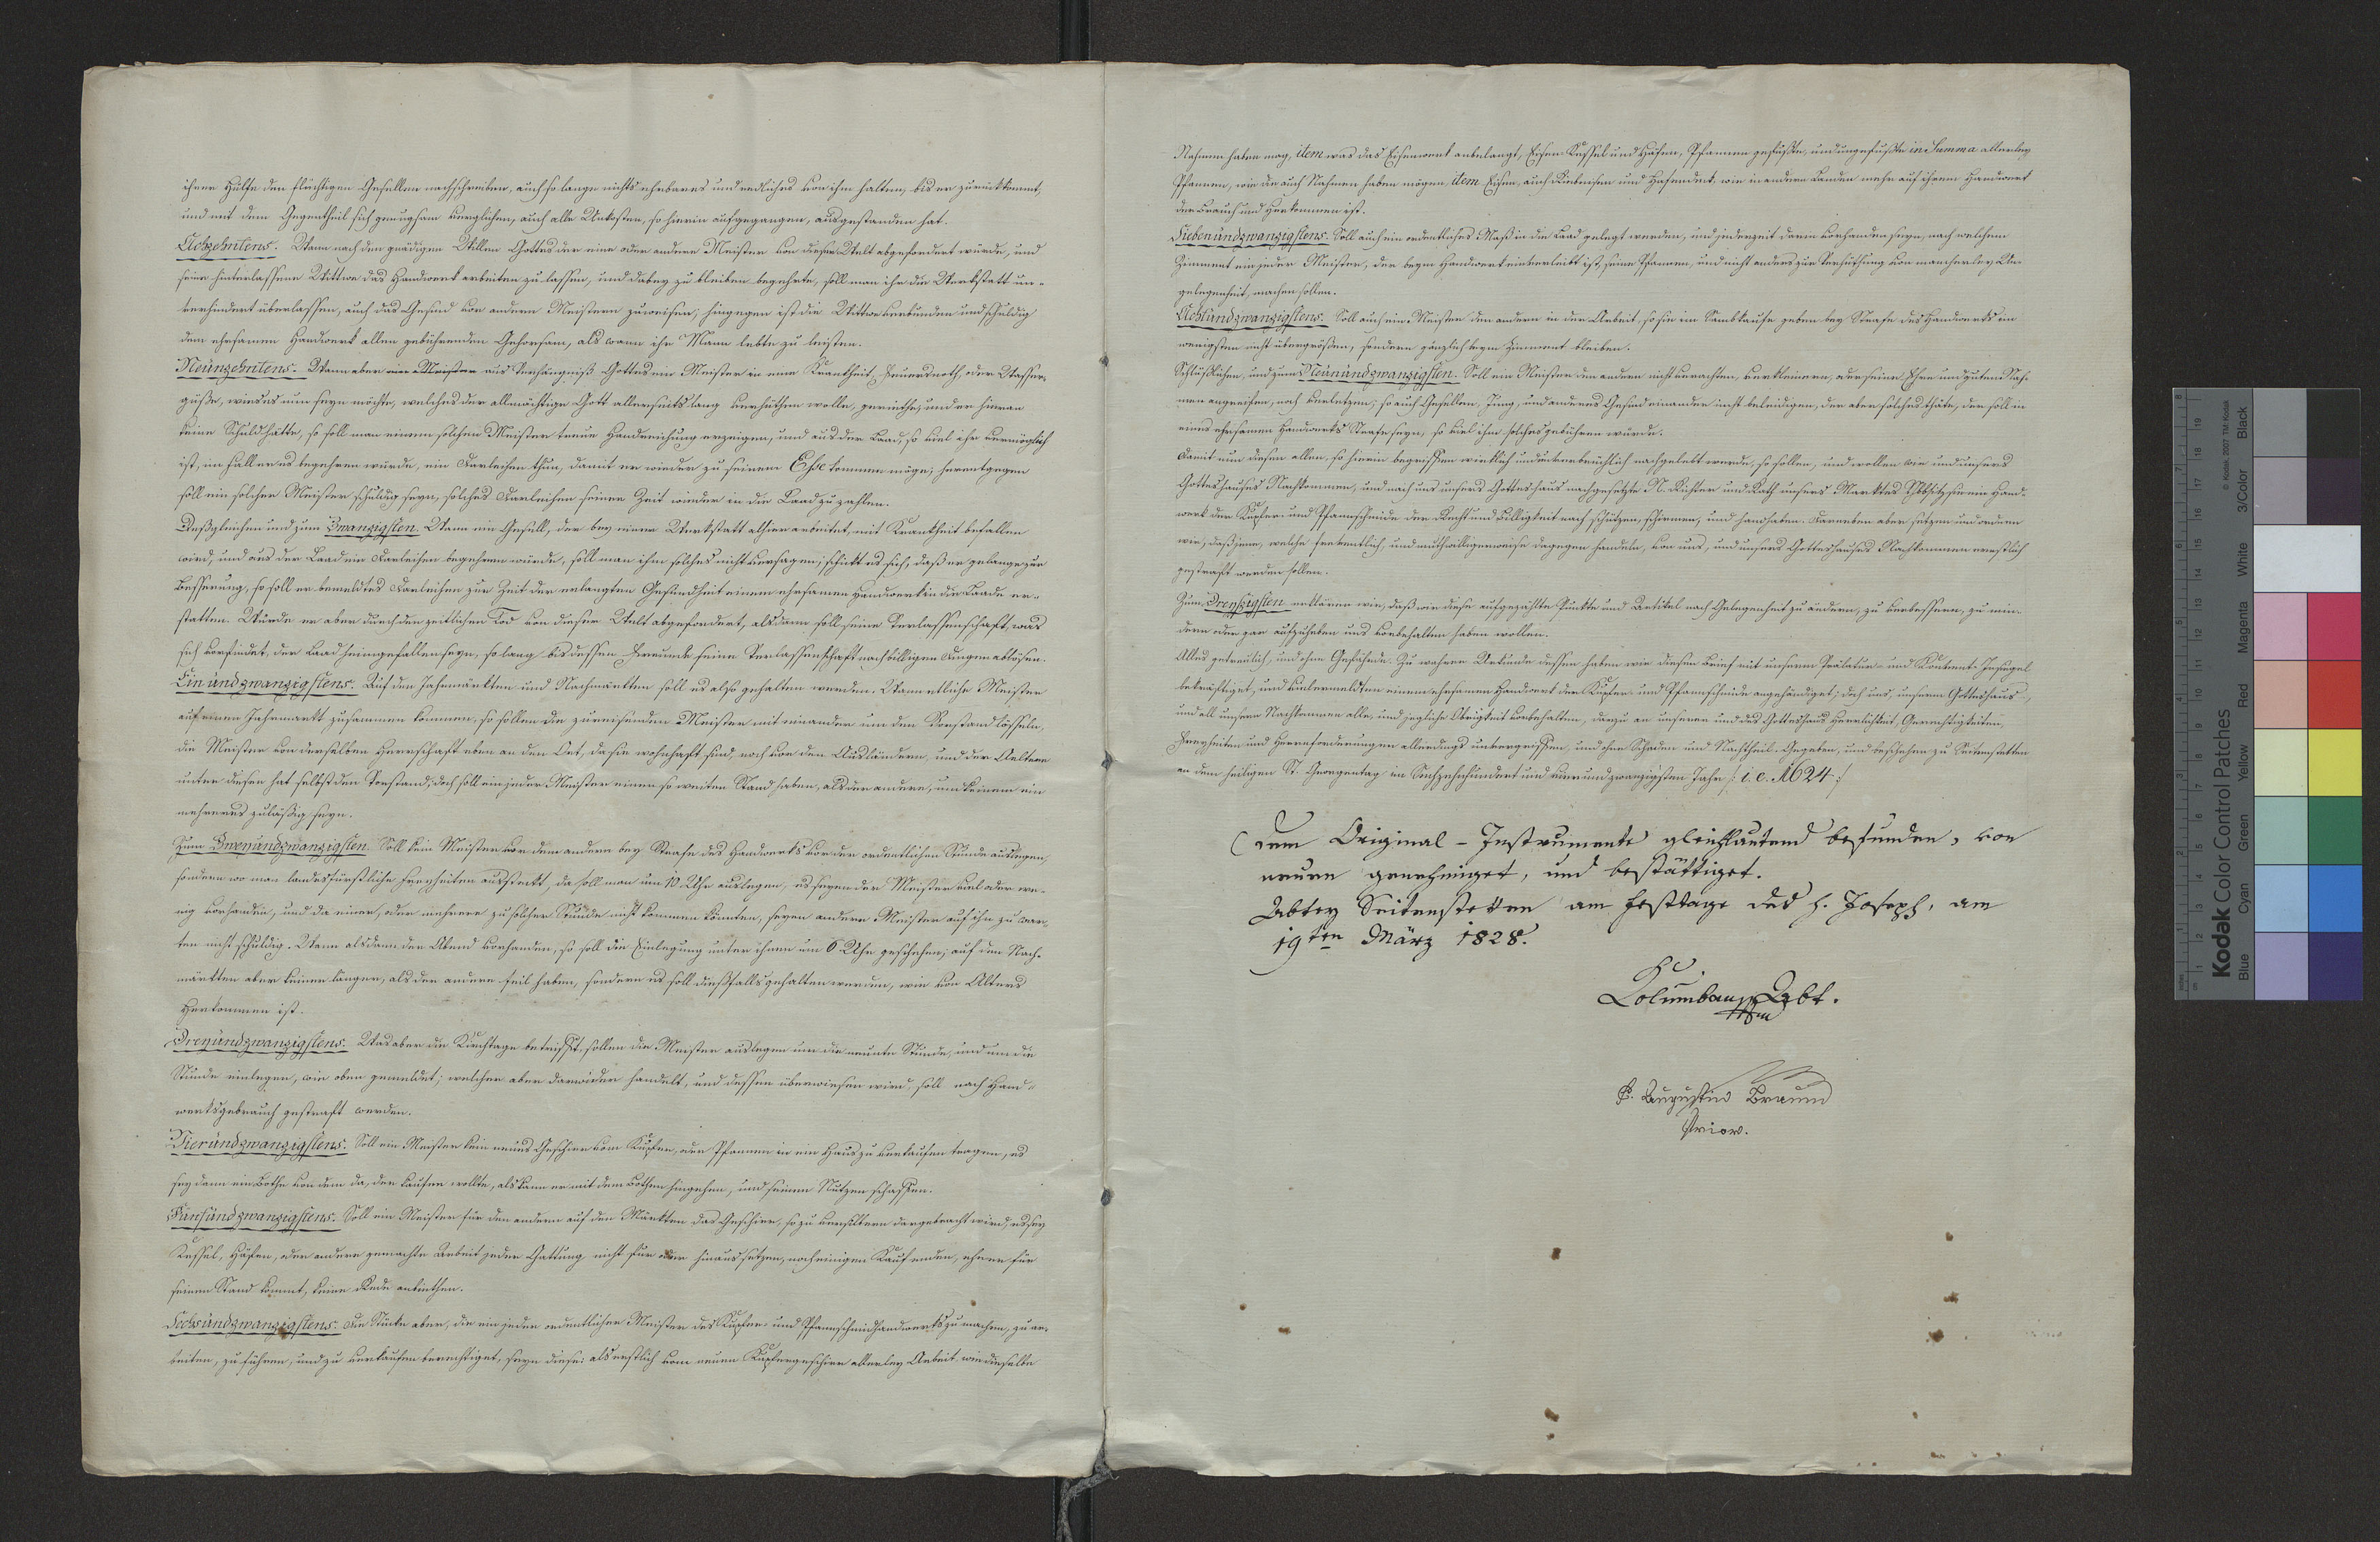 ihrer Hülfe den flüchtigen Gesellen nachschreiben, auch so lange nichts ehrbares und redliches von ihm halten, bis er zurückkommt,
und mit dem Gegentheil sich genugsam verglichen, auch alle Unkosten, so hierin aufgegangen, ausgestanden hat.
Achzehntens. Wann nach den gnädigen Willen Gottes der eine oder andere Meister von dieser Welt abgefordert würde, und
seine hinterlassene Wittwe das Handwerk arbeiten zu lassen, und dabey zu bleiben begehrte, soll man ihr die Werkstatt un-
verhindert überlassen, auch das Gesind von andern Meistern zuweisen; hingegen ist die Wittwe verbunden und schuldig
dem ehrsamen Handwerk allen gebührenden Gehorsam, als wann ihr Mann lebte zu leisten.
Neünzehntens. Wann aber ein Meister aus Verhängniß Gottes ein Meister in eine Krankheit, Feuersnoth, oder Wasser-
güße, wie es nun seyn möchte, welches der allmächtige Gott allerseits lang verhüthen wolle, geriethe, und er hieran
keine Schuld hätte, so soll man einem solchen Meister treue Handreichung erzeigen, und aus der Laad, so viel ihr vermöglich
ist, im Fall er es begehren würde, ein Darleihen thun, damit er wieder zu seinem Esse kommen möge; herentgegen
soll ein solcher Meister schuldig seyn, solches Darleihen seiner Zeit wieder in die Laad zu zahlen.
Deßgleichen und zum Zwanzigsten. Wann ein Gesell, der bey einer Werkstatt alhier arbeitet, mit Krankheit befallen
wird, und aus der Laad ein Darleihen begehren würde, soll man ihm solches nicht versagen; schickt es sich, daß er gelange zur
Besserung, so soll er bemeldtes Darleihen zur Zeit der erlangten Gesundheit einem ehrsamen Handwerk in die Laade er-
statten. Würde er aber durch den zeitlichen Tod von dieser Welt abgefordert, alsdann soll seine Verlassenschaft, was
sich vorfindet, der Laad heimgefallen seyn, so lang bis dessen Freunde seine Verlassenschaft nach billigen Dingen ablösen.
Einündzwanzigstens. Auf den Jahrmärkten und Nachmärkten soll es also gehalten werden. Wann etliche Meister
auf einen Jahrmarkt zusammen kommen, so sollen die zureisenden Meister mit einander um den Vorstand lösseln,
die Meister von derselben Herrschaft eben an den Ort, da sie wohnhaft sind, noch vor den Ausländern, und der Aeltere
unter diesen hat selbst den Vorstand; doch soll ein jeder Meister einen so weiten Stand haben, als der andere, und keinem ein
mehreres zuläßig seyn.
Zum Zweyündzwanzigsten. Soll kein Meister vor dem andern bey Strafe des Handwerks vor der ordentlichen Stunde auslegen,
sondern wo man landesfürstliche Freyheiten aussteckt, da soll man um 10 Uhr auslegen, es seyen der Meister viel oder we-
nig vorhanden, und da einer, oder mehrere zu solcher Stunde nicht kommen könnten, seyen andere Meister auf ihn zu war-
ten nicht schuldig. Wann alsdann der Abend vorhanden, so soll die Einlegung unter ihnen um 6 Uhr geschehen; auf den Nach-
märkten aber keiner länger, als der andere feil haben, sondern es soll dießfalls gehalten werden, wie von Alters
Herkommen ist.
Dreyündzwanzigstens. Was aber die Kirchtage betrifft, sollen die Meister auslegen um die neunte Stunde, und um die
Stunde einlegen, wie oben gemeldet; welcher aber darwider handelt, und dessen überwiesen wird, soll nach Hand-
werksgebrauch gestraft werden.
Vieründzwanzigstens. Soll ein Meister kein neues Geschirr vom Kupfer, oder Pfannen in ein Haus zu verkaufen tragen, es
sey dann ein Bothe von dem da, der kaufen wollte, als kann er mit dem Bothen hingehen, und seinen Nutzen schaffen.
Fünfündzwanzigstens. Soll ein Meister für den andern auf den Märkten das Geschirr, so zu versilbern dargebracht wird, es sey
Kessel, Häfen, oder andere gemachte Arbeit jeder Gattung nicht für oder hinaus setzen, noch einigen Kaufenden, ehe er für
seinen Stand kommt, keine Rede anbiethen.
Sechsündzwanzigstens. Die Stücke aber, die ein jeder ordentlicher Meister des Kupfer- und Pfannschmidhandwerks zu machen, zu ar-
beiten, zu führen, und zu verkaufen berechtiget, seyn diese: als erstlich vom neuen Kupfergeschirr allerley Arbeit wie dieselbe
Nahmen haben mag, item was das Eisenwerk anbelangt, Eisen Kessel und Häfen, Pfannen gefußte, und ungefußte in Summa allerley
Pfannen, wie die auch Nahmen haben mögen, item Eisen, auch Reibeisen und Hafendeck, wie in andern Landen mehr auf ihrem Handwerk
der Brauch und Herkommen ist.
Siebenündzwanzigstens. Soll auch ein ordentliches Maß in die Laad gelegt werden, und jederzeit darin vorhanden seyn, nach welchem
Zimment ein jeder Meister, der beym Handwerk einverleibt ist, seine Pfannen, und nicht anders zur Verhüthung von mancherley Un-
gelegenheit, machen sollen.
Achtündzwanzigstens. Soll auch ein Meister den andern in der Arbeit, so sie im Sambkaufe geben bey Strafe des Handwerks im
wenigsten nicht übergrößen, sondern gänzlich beym Zimment bleiben.
Schlüßlichen, und zum Neünündzwanzigsten. Soll ein Meister den andern nicht verachten, verkleinern, oder seiner Ehre und guten Nah-
men angreifen, noch verletzen; so auch Gesellen, Jung, und anderes Gesind einander nicht beleidigen, der aber solches thäte, der soll in
eines ehrsamen Handwerks Strafe seyn, so viel ihm solches gebühren würde.
Damit nun diesen allen, so hierin begriffen wirklich und unverbrüchlich nachgelebt werde, so sollen, und wollen wir und unsers
Gotteshauses Nachkommen, und nach uns unsers Gotteshaus nachgesetzte N. Richter und Rath unsers Marktes Ybbsitz einem Hand-
werk der Kupfer- und Pfannschmide der Recht und Billigkeit nach schützen, schirmen, und handhaben. Darneben aber setzen und ordnen
wir, daß jene, welche freventlich, und muthwilligerweise dagegen handeln, von uns, und unsers Gotteshauses Nachkommen ernstlich
gestraft werden sollen.
Zum Dreyßigsten erklären wir, daß wir diese aufgezählte Punkte und Artikel nach Gelegenheit zu ändern, zu verbessern, zu min-
dern oder gar aufzuheben uns vorbehalten haben wollen.
Alles getreulich, und ohne Gefährde. Zu wahrer Urkunde dessen haben wir diesen Brief mit unserm Prälatur- und Konvent-Insigel
bekräftiget, und vielermeldten einem ehrsamen Handwerk der Kupfer- und Pfannschmide angehändiget; doch uns, unserm Gotteshaus
und all unsern Nachkommen alle, und jegliche Obrigkeit vorbehalten, darzu an unseren und des Gotteshaus Herrlichkeit, Gerechtigkeiten,
Freyheiten und Herrnforderungen allerdings unvergriffen, und ohne Schaden und Nachtheil. Gegeben, und beschehen zu Seitenstetten
an dem heiligen St. Georgentag im Sechzehnhundert und vier und zwanzigsten Jahr /: i. e. 1624 :/
Dem Original-Instrumente gleichlautend befunden, von
neuen genehmiget, und bestättiget.
Abtey Seitenstetten am Festtage des h. Joseph, am
19ten März 1828.
Columban Abt.
P. Augustin Braun
Prior.
Kodak Color Control Patches
© Kodak, 2007 TM: Kodak
Blue Cyan Green Yellow Red Magenta White 3Color Black